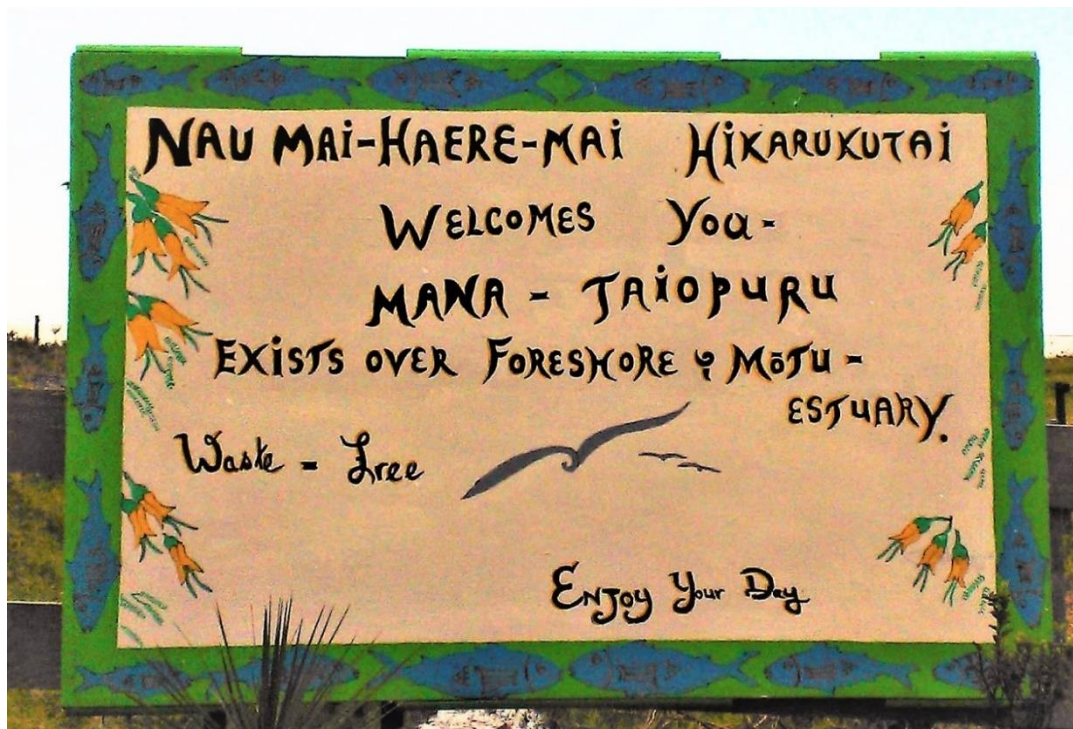 NAU MAI-HAERE-MAI HIKARUKUTAI
WELCOMES YOU-
MANA - TAIOPURU
EXISTS OVER FORESHORE & MŌTU -
ESTUARY.
Waste - Free
ENJOY YOUR DAY